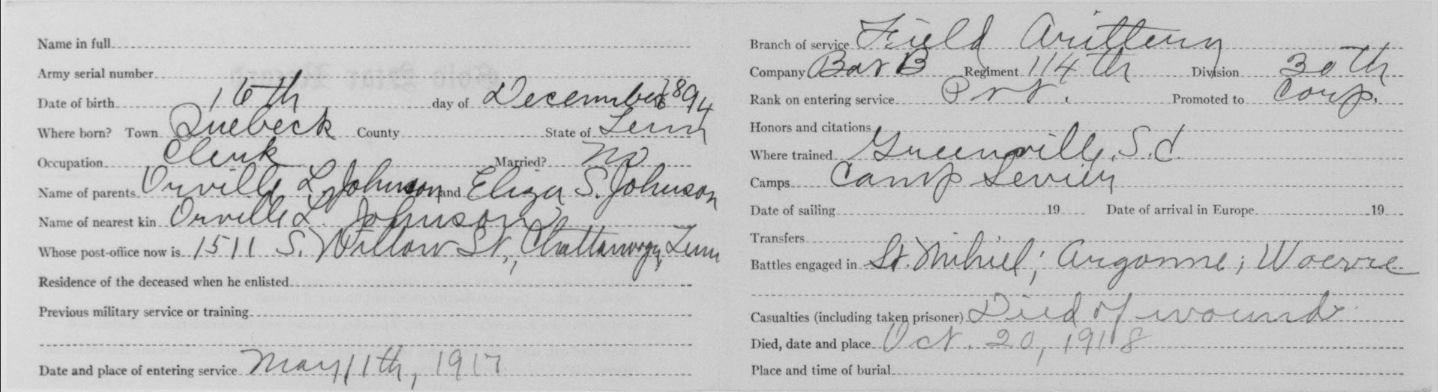 Name in full
Army serial number
Date of birth 16th day of December 1894
Where born? Town Quebeck County State of Tenn
Occupation Clerk Married? No
Name of parents Orville L. Johnson and Eliza S. Johnson
Name of nearest kin Orville L. Johnson
Whose post-office now is 1511 S. Willow St., Chattanooga, Tenn
Residence of the deceased when he enlisted
Previous military service or training
Date and place of entering service May 11th, 1917
Branch of service Field Artillery
Company Bat B Regiment 114th Division 30th
Rank on entering service Pvt. Promoted to Corp.
Honors and citations
Where trained Greenville, S.C.
Camps Camp Sevier
Date of sailing 19 Date of arrival in Europe 19
Transfers
Battles engaged in St. Mihiel; Argonne; Woevre
Casualties (including taken prisoner) Died of wounds
Died, date and place Oct. 20, 1918
Place and time of burial